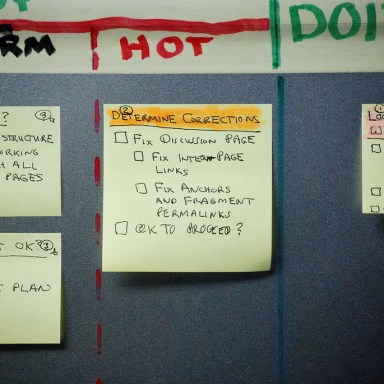 RM
HOT
DOI
?
STRUCTURE
ORKING
ALL
PAGES
OK?
PLAN
2
DETERMINE CORRECTIONS
FIX DISCUSSION PAGE
FIX INTER-PAGE
LINKS
FIX ANCHORS
AND FRAGMENT
PERMALINKS
OK TO PROCEED?